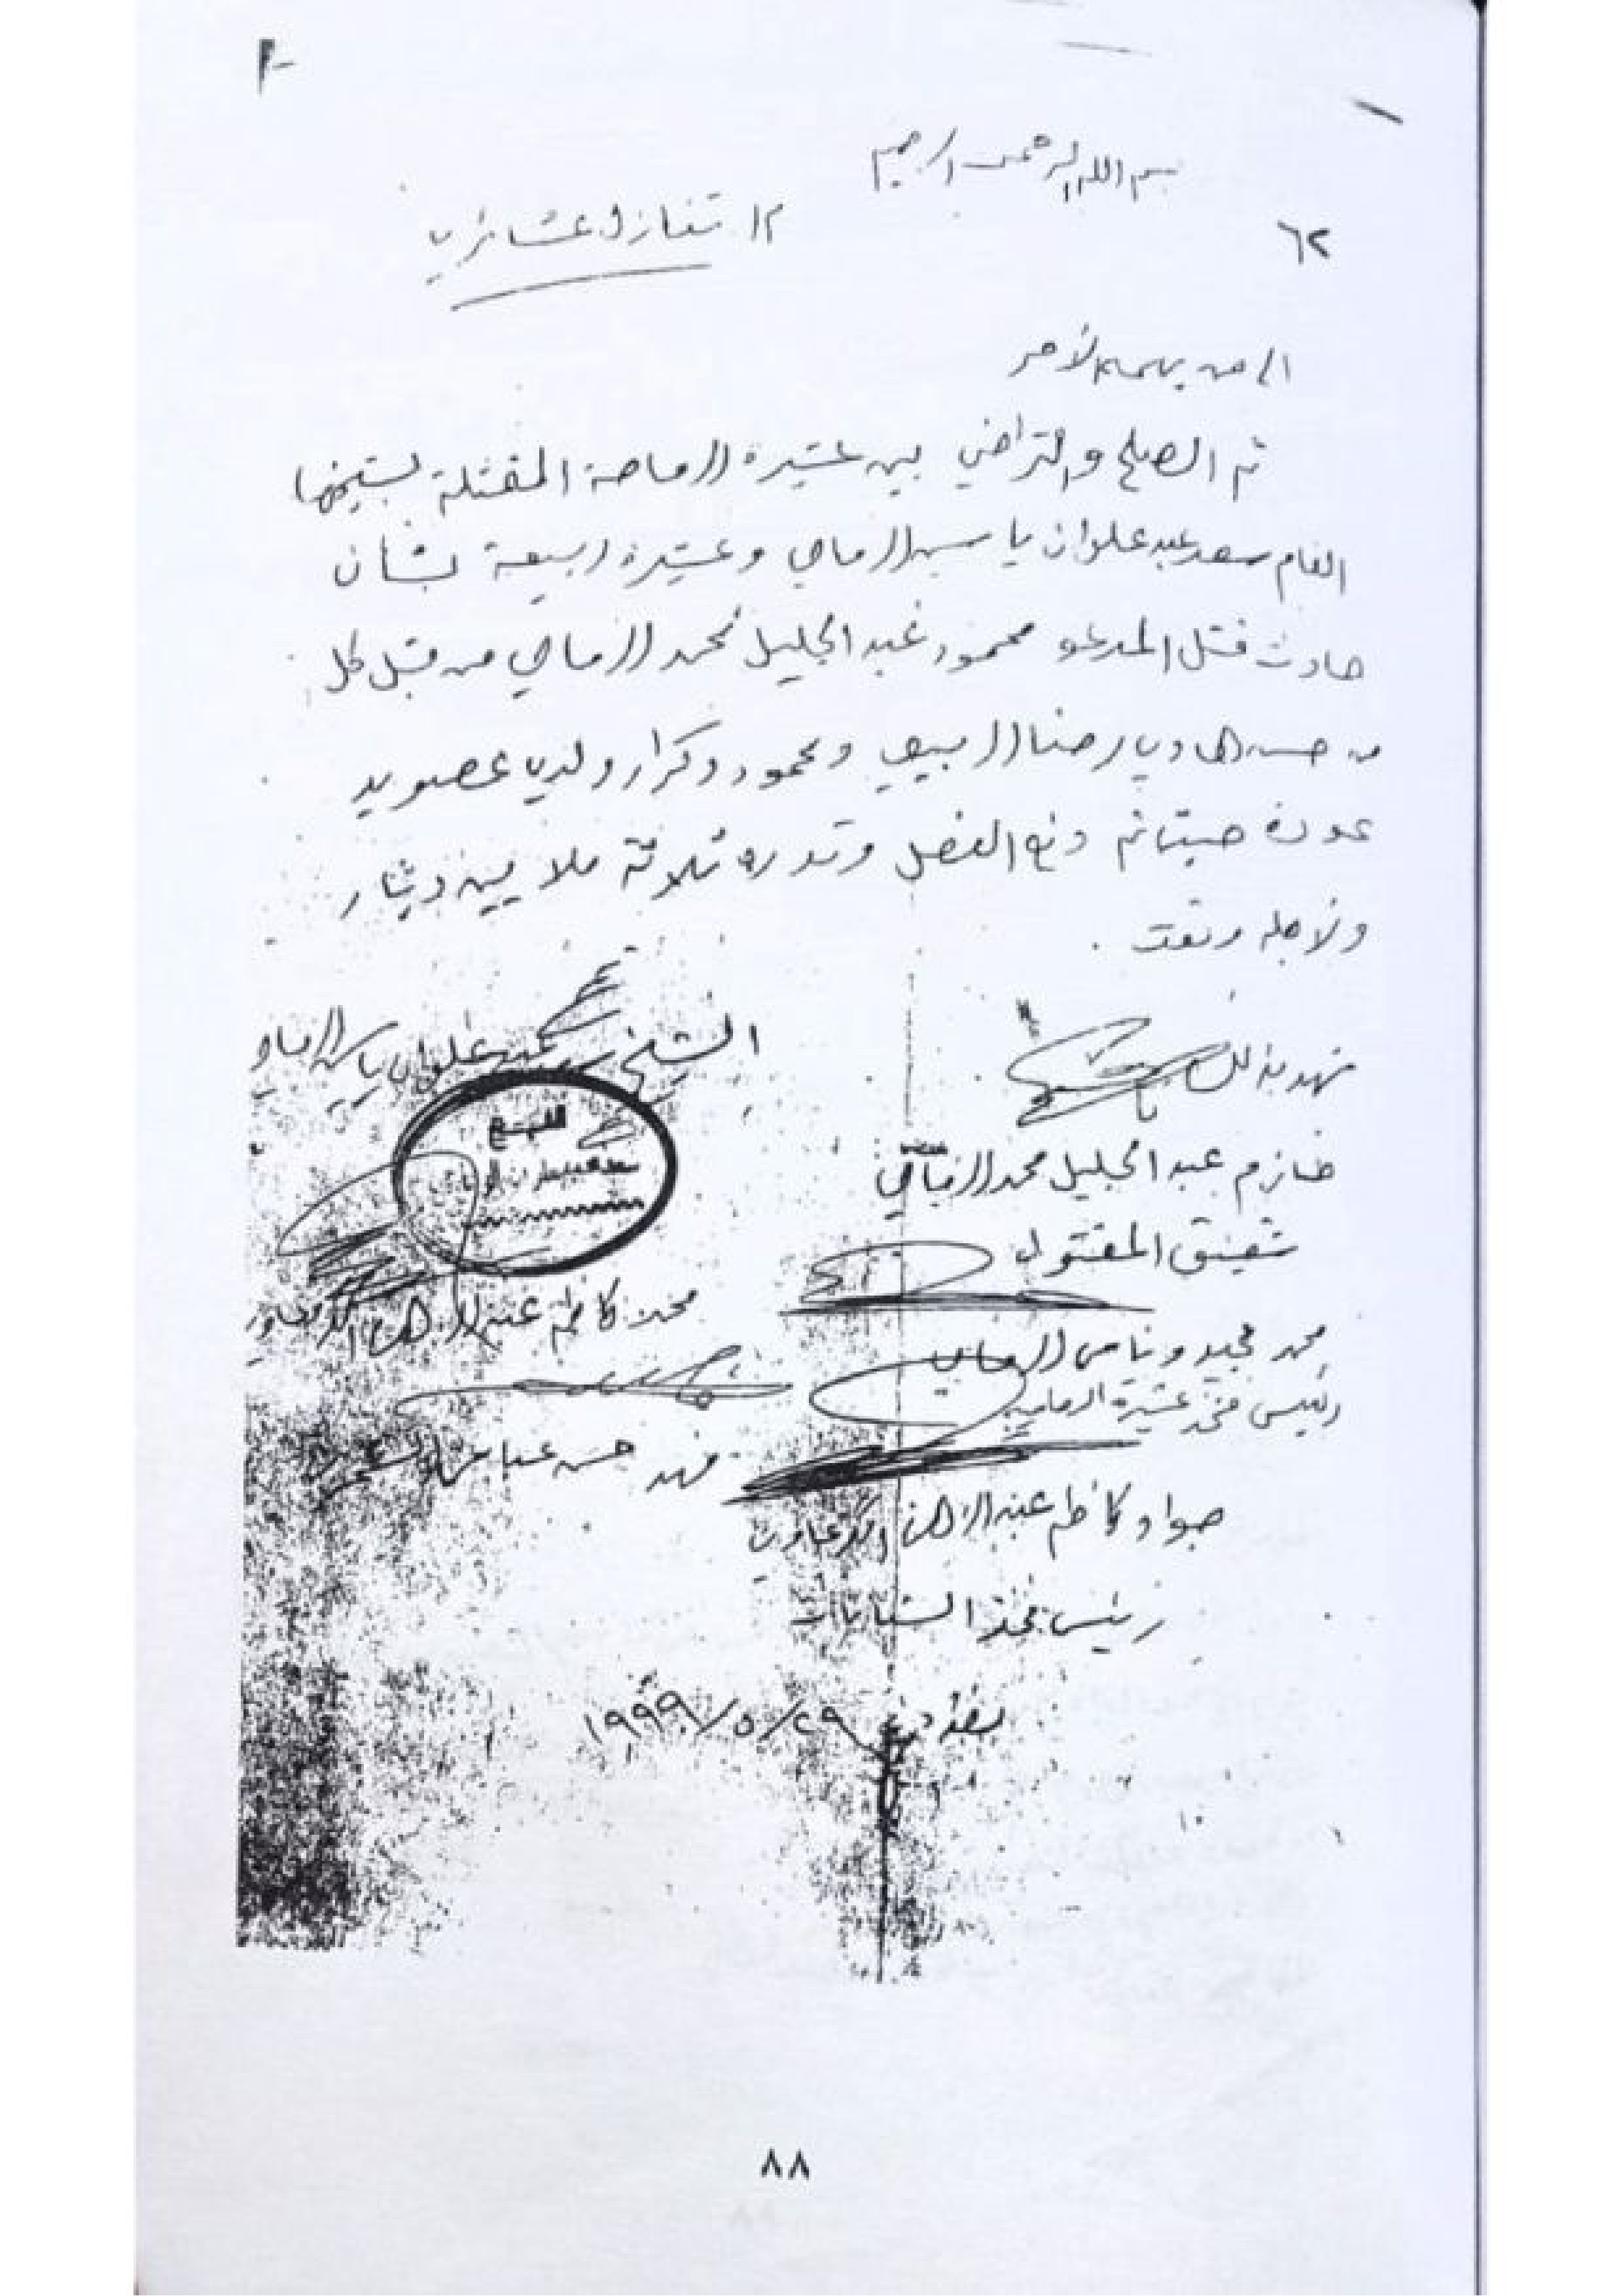 بسم الله الرحمن الرحيم
٦٢
م / تنازل عشائري
الى من يهمه الأمر
تم الصلح والتراضي بين عشيرة الرماحة الممثلة بشيخها
العام سعد عبد علوان ياسين الرماحي وعشيرة ربيعة بشأن
حادث قتل المدعو محمود عبد الجليل محمد الرماحي من قبل كل
من حسن الهادي رضا الربيعي ومحمود وكرار ولدي
عودة حيث تم دفع الفصل وقدره ثلاثة ملايين دينار
ولأجله وقعت .
الشيخ سعد عبد علوان ياسين الرماحي
شهد بذلك
حازم عبد الجليل محمد الرماحي
شقيق المقتول
محمد كاظم عبد
محمد مجيد وناس الرماحي
رئيس فخذ عشيرة الرماحي
فهد حسن عباس
جواد كاظم عبد
رئيس فخذ
بغداد في ٢٩/٥/١٩٩٩
٨٨